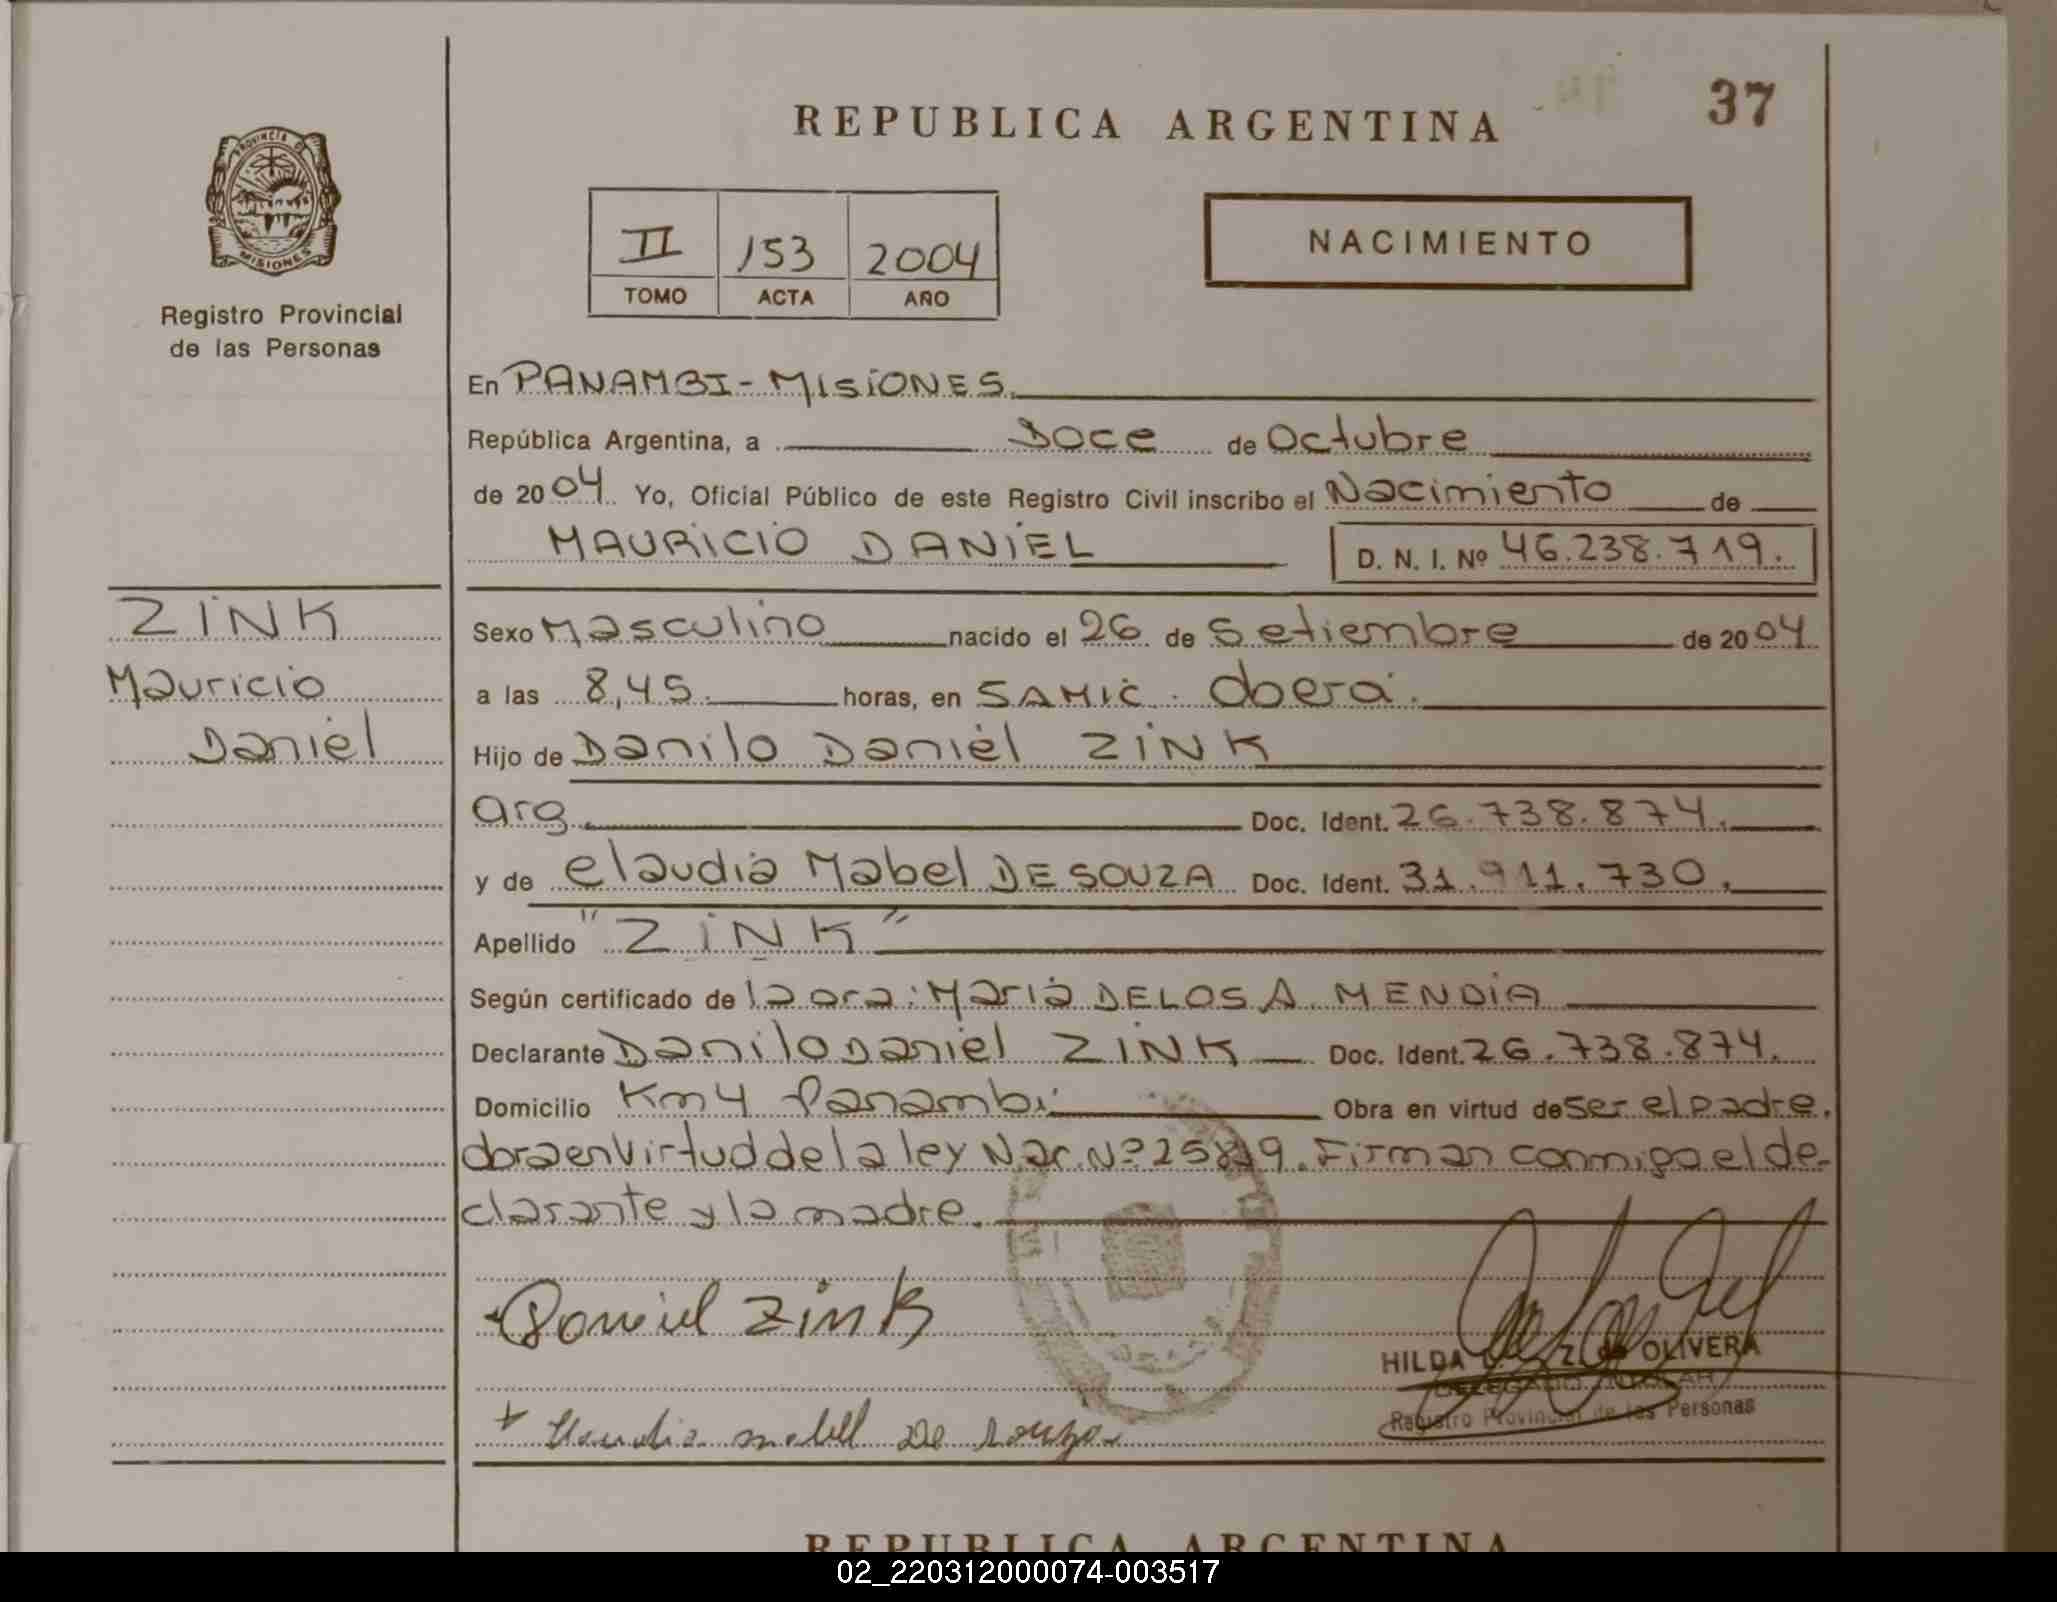 37
REPUBLICA ARGENTINA
PROVINCIA DE
MISIONES
Registro Provincial
de las Personas
II 153 2004
TOMO ACTA AÑO
NACIMIENTO
En PANAMBI - MISIONES.
República Argentina, a Doce de Octubre
de 2004 Yo, Oficial Público de este Registro Civil inscribo el Nacimiento de
MAURICIO DANIEL D. N. I. Nº 46.238.719.
ZINK
Mauricio
Daniel
Sexo Masculino nacido el 26 de Setiembre de 2004
a las 8,45. horas, en SAMIC. Oberá.
Hijo de Danilo Daniel ZINK
Arg. Doc. Ident. 26.738.874.
y de Claudia Mabel DE SOUZA Doc. Ident. 31.911.730.
Apellido "ZINK"
Según certificado de la Dra: María DE LOS A. MENDIA
Declarante Danilo Daniel ZINK Doc. Ident. 26.738.874.
Domicilio Km 4 Panambi Obra en virtud de ser el padre.
Obra en virtud de la ley Nac. Nº 25819. Firman conmigo el de-
clarante y la madre.
Daniel Zink
HILDA Z. de OLIVERA
DELEGADO TITULAR
Registro Provincial de las Personas
Claudia Mabel De Souza
REPUBLICA ARGENTINA
02_220312000074-003517